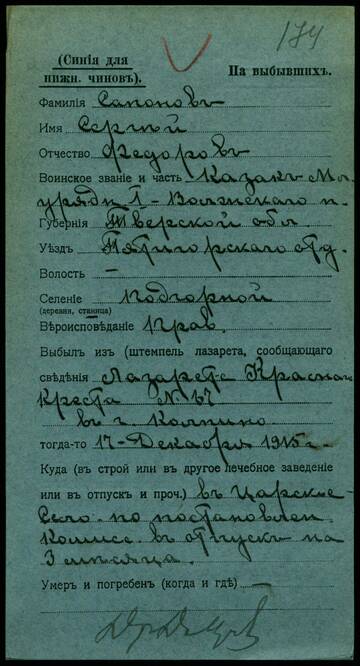 174
(Синія для
нижн. чиновъ).
На выбывшихъ.
Фамилія Сапоновъ
Имя Сергѣй
Отчество Федоровъ
Воинское званіе и часть Казакъ
1 - Волжскаго п.
Губернія Тверской обл.
Уѣздъ Пятигорскаго отд.
Волость —
Селеніе Подгорной
(деревня, станица)
Вѣроисповѣданіе Прав.
Выбылъ изъ (штемпель лазарета, сообщающаго
свѣдѣнія Лазаретъ Краснаго
Креста № 67
въ г. Колпино
тогда-то 17 - Декабря 1915 г.
Куда (въ строй или въ другое лечебное заведеніе
или въ отпускъ и проч.) въ Царское
Село по постановлен.
Комисс. въ отпускъ на
3 мѣсяца.
Умеръ и погребенъ (когда и гдѣ)